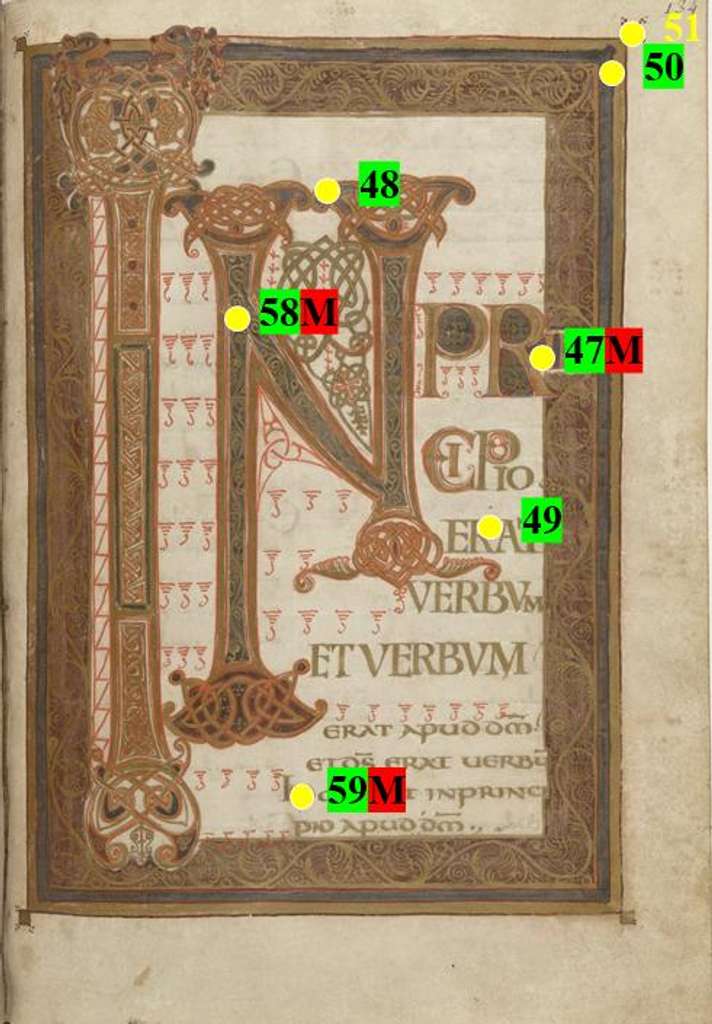 51
50
48
IN
58M
PRI 47M
CIPIO
49
ERAT
VERBVM
ET VERBVM
ERAT APUD DM̄
ET DS̄ ERAT UERBŪ
59M
INPRINCI
PIO APUD DM̄.,